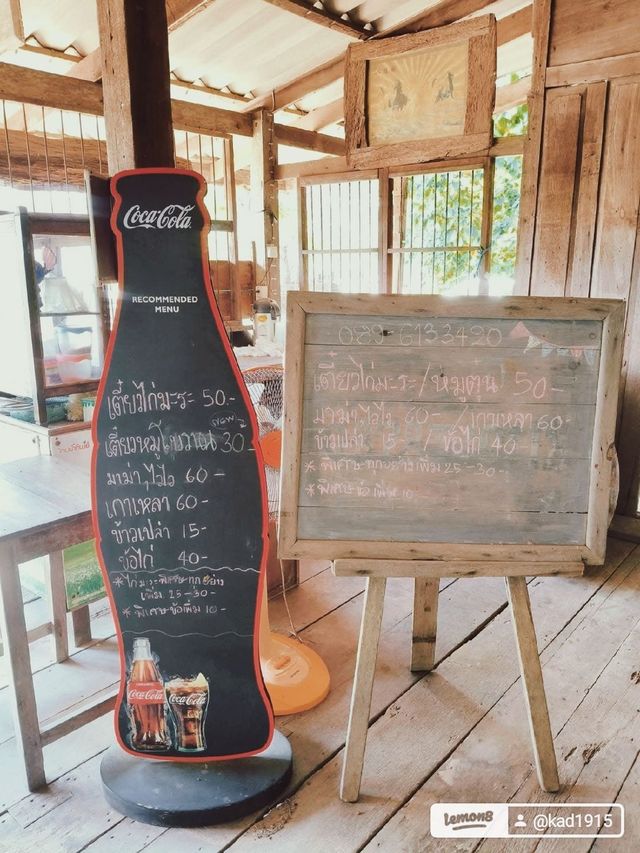 Coca-Cola
RECOMMENDED
MENU
เตี๋ยวไก่มะระ 50.-
เตี๋ยวหมู 30.-
มาม่า,ไวไว 60-
เกาเหลา 60-
ข้าวเปล่า 15-
ข้อไก่ 40-
*ไก่มะระพิเศษทุกอย่าง
เพิ่ม 25-30-
*พิเศษข้อเพิ่ม 10-
Coca-Cola
Coca-Cola
089-6133420
เตี๋ยวไก่มะระ/หมูตุ๋น 50-
มาม่า,ไวไว 60-/เกาเหลา 60-
ข้าวเปล่า 15-/ข้อไก่ 40-
*พิเศษทุกอย่างเพิ่ม 25-30-
*พิเศษข้อเพิ่ม 10
Lemon8 @kad1915